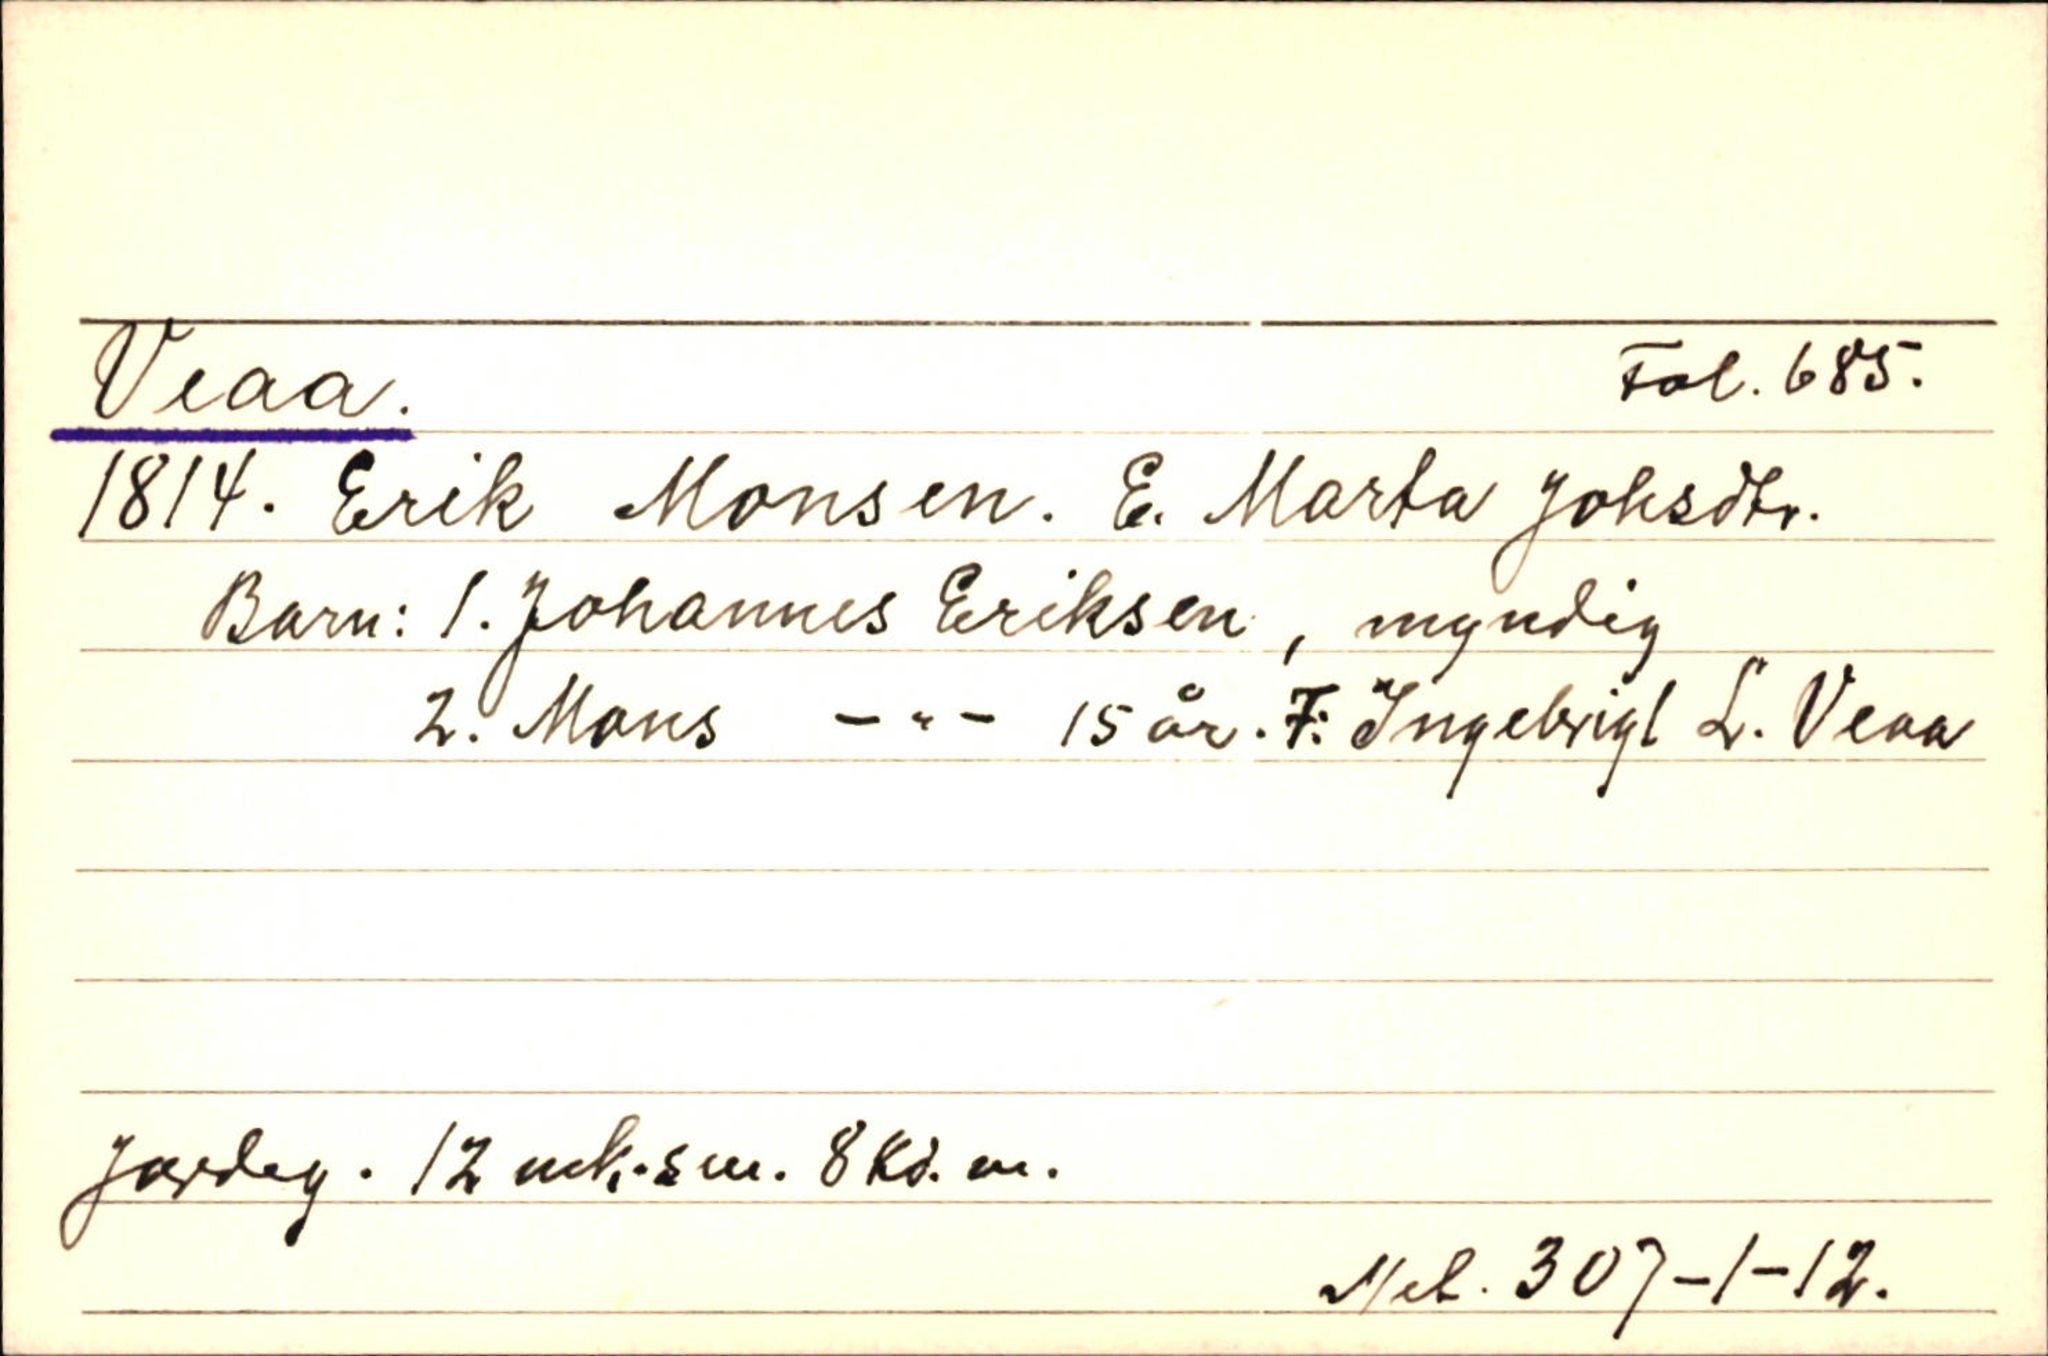 Veaa. Fol. 685.
1814. Erik Monsen. E. Marta Johsdtr.
Barn: 1. Johannes Eriksen, myndig
2. Mons -"- 15 år. F: Ingebrigt L. Veaa
Jordeg. 12 mk. sm. 8 Kd. m.
Net. 307-1-12.